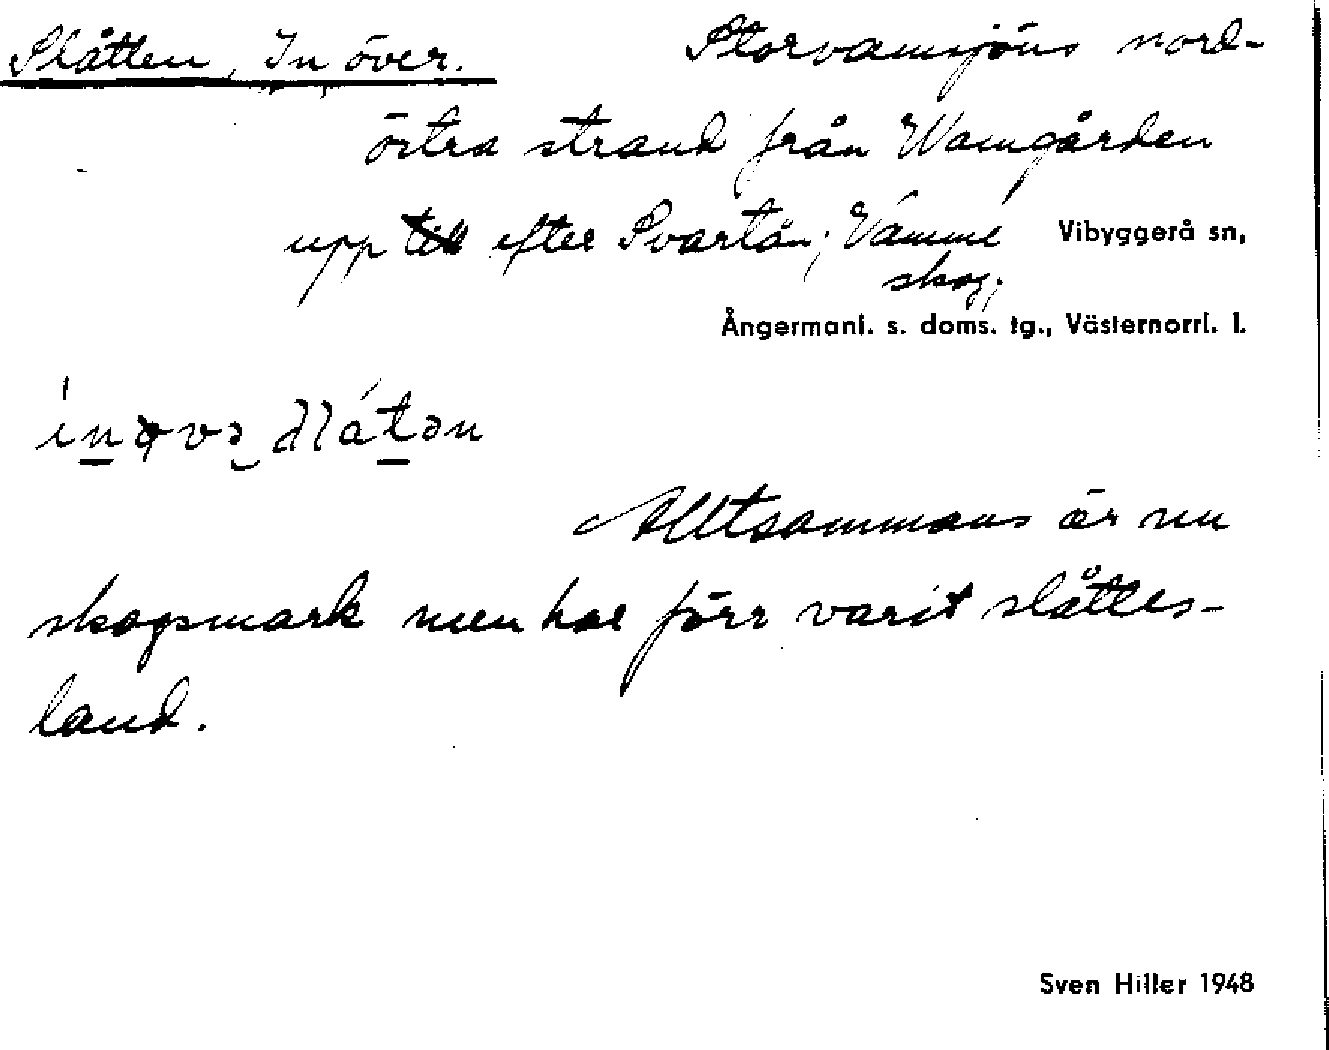 Slåtten, In över. Storvamsjöns nord-
östra strand från Wamgården
upp till efter Svartån; Vämme Vibyggerå sn,
skog;
Ångermanl. s. doms. tg., Västernorrl. l.
Alltsammans är nu
skogsmark men har förr varit slåttes-
land.
Sven Hiller 1948